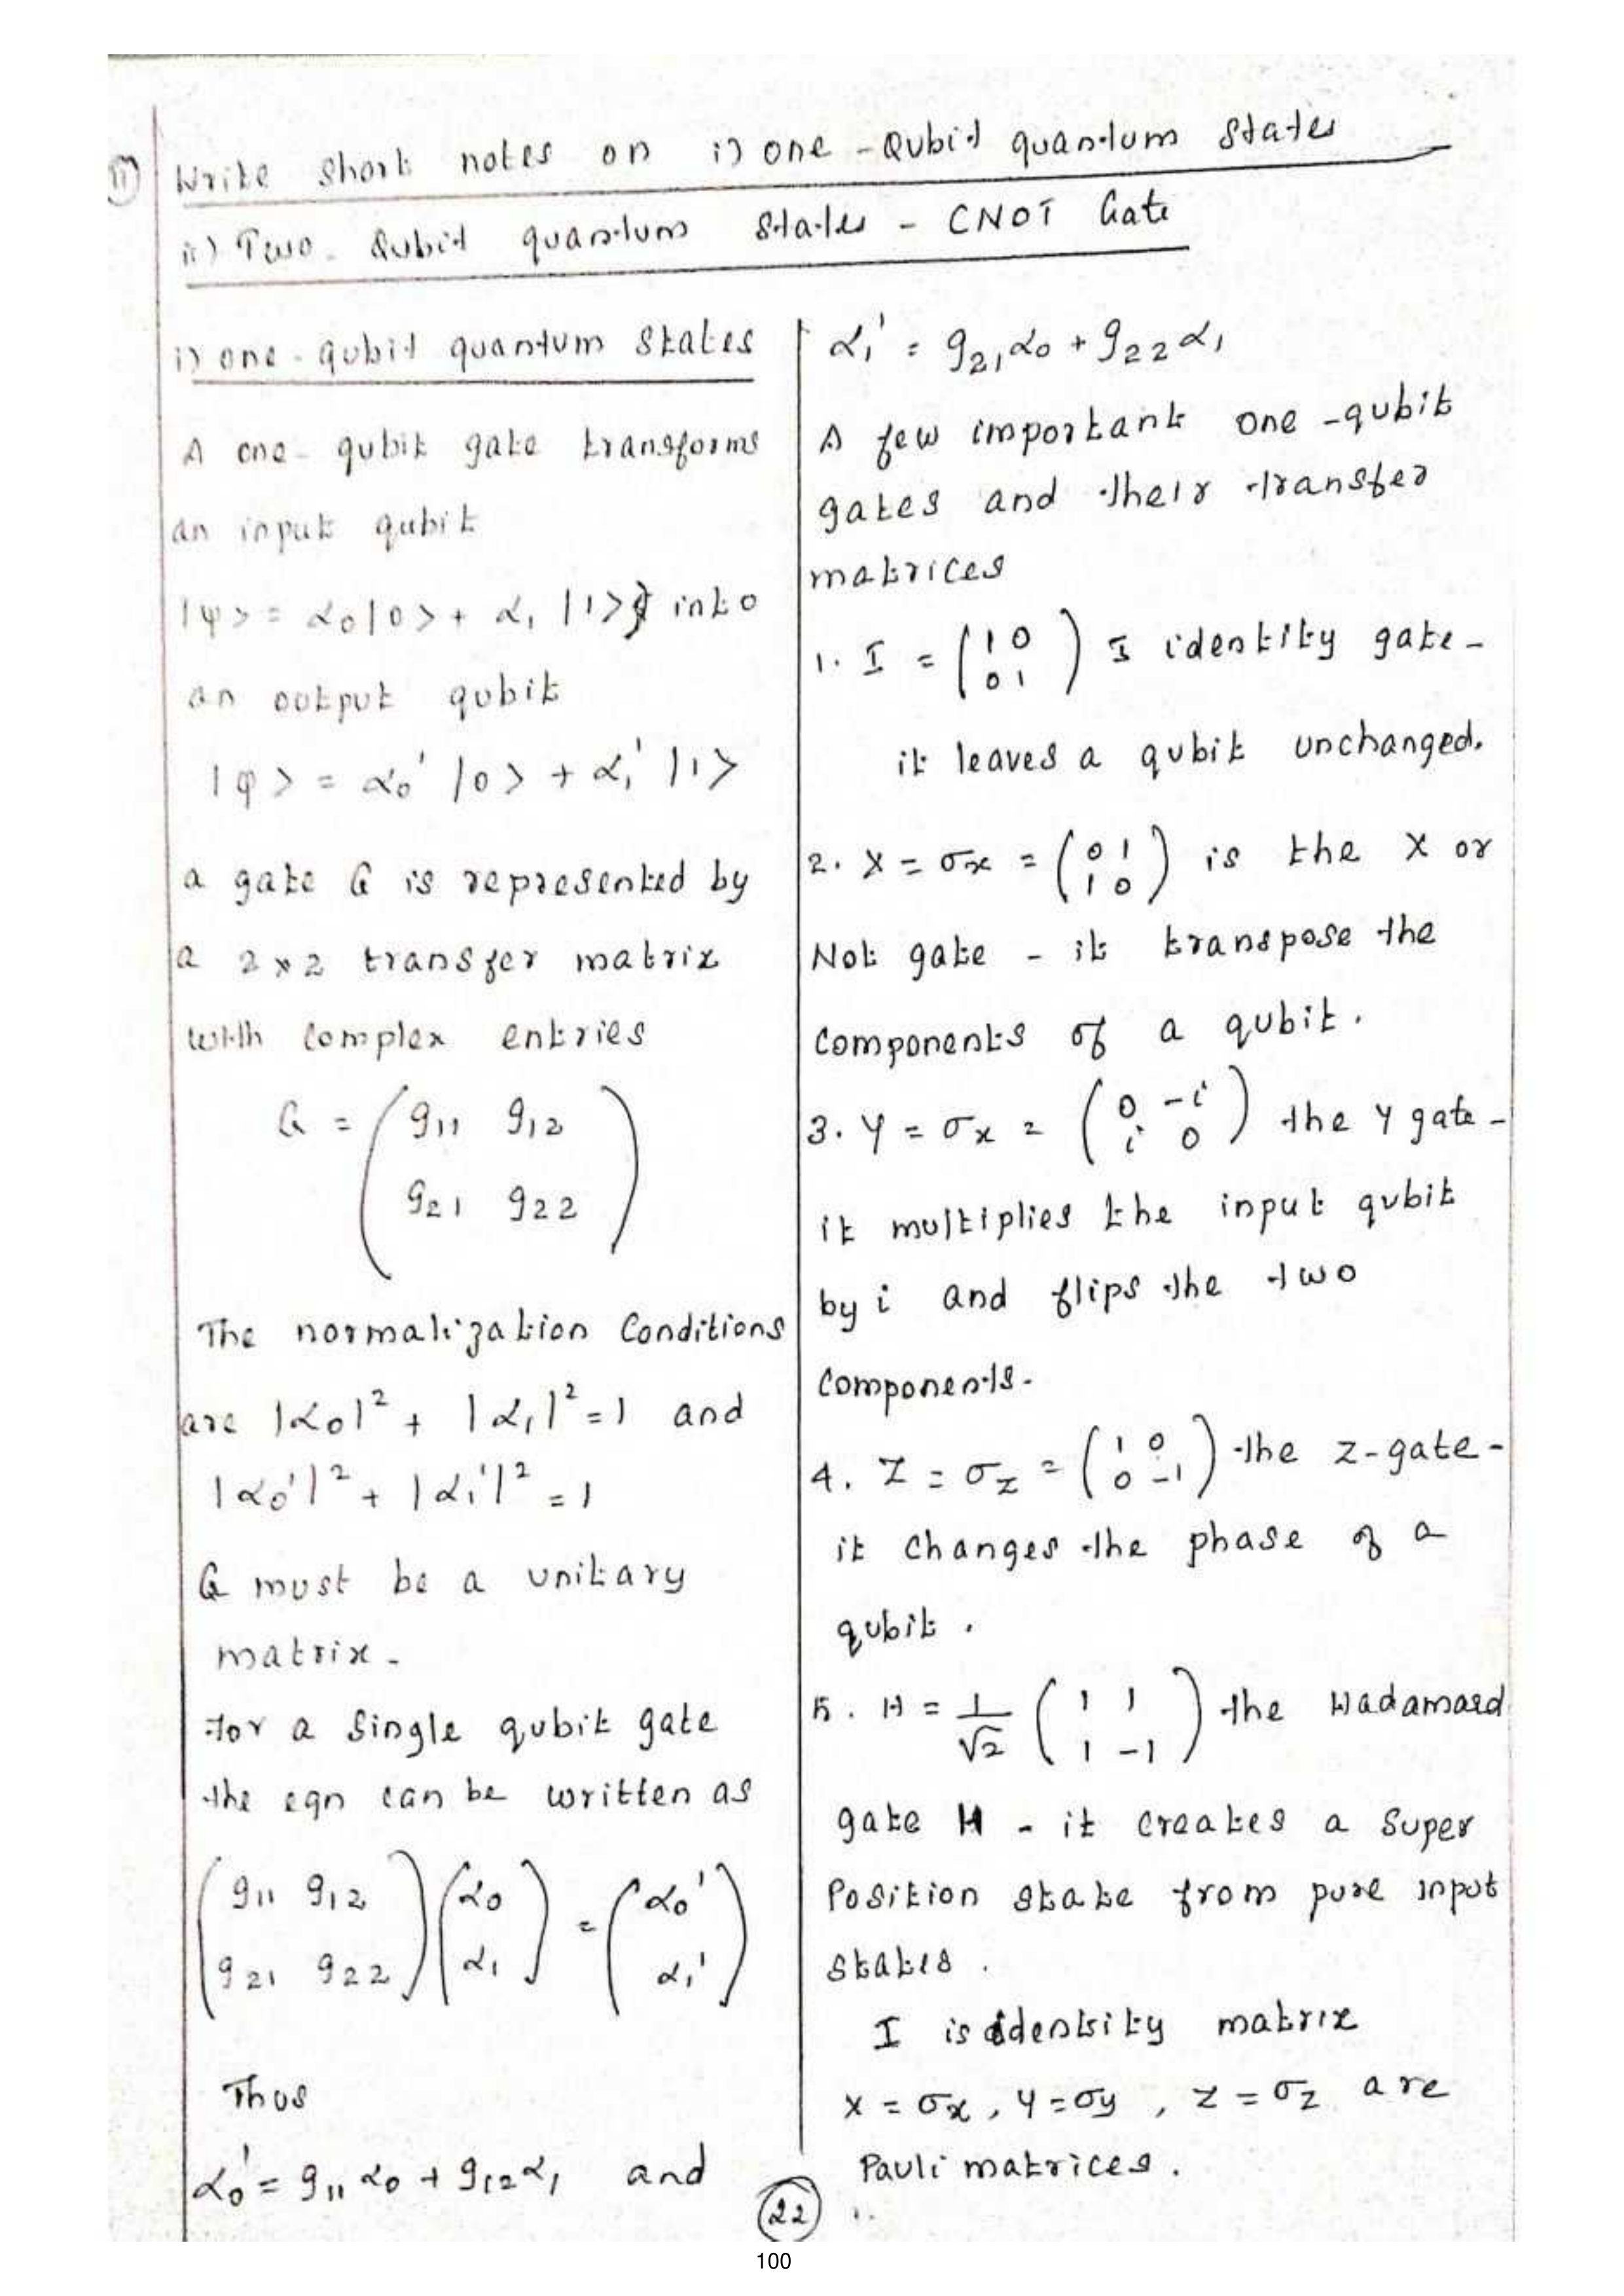 11) Write short notes on i) one - Qubit quantum states
ii) Two - Qubit quantum states - CNOT Gate
i) one - qubit quantum states
A one - qubit gate transforms
an input qubit
|ψ> = α₀|0> + α₁ |1> into
an output qubit
|φ> = α₀' |0> + α₁' |1>
a gate G is represented by
a 2 x 2 transfer matrix
with complex entries
G = ( g₁₁ g₁₂
g₂₁ g₂₂ )
The normalization Conditions
are |α₀|² + |α₁|² = 1 and
|α₀'|² + |α₁'|² = 1
G must be a unitary
matrix -
for a single qubit gate
the eqn can be written as
( g₁₁ g₁₂ ) ( α₀ ) = ( α₀' )
( g₂₁ g₂₂ ) ( α₁ ) ( α₁' )
Thus
α₀' = g₁₁ α₀ + g₁₂ α₁ and
α₁' = g₂₁ α₀ + g₂₂ α₁
A few important one - qubit
gates and their transfer
matrices
1. I = ( 1 0
0 1 ) I identity gate -
it leaves a qubit unchanged.
2. X = σx = ( 0 1
1 0 ) is the X or
Not gate - it transpose the
Components of a qubit.
3. Y = σx = ( 0 -i
i 0 ) the Y gate -
it multiplies the input qubit
by i and flips the two
Components -
4. Z = σz = ( 1 0
0 -1 ) the Z-gate -
it changes the phase of a
qubit .
5. H = 1/√2 ( 1 1
1 -1 ) the Hadamard
gate H - it creates a Super
Position state from pure input
states .
I is identity matrix
X = σx , Y = σy , Z = σz are
Pauli matrices .
22
100